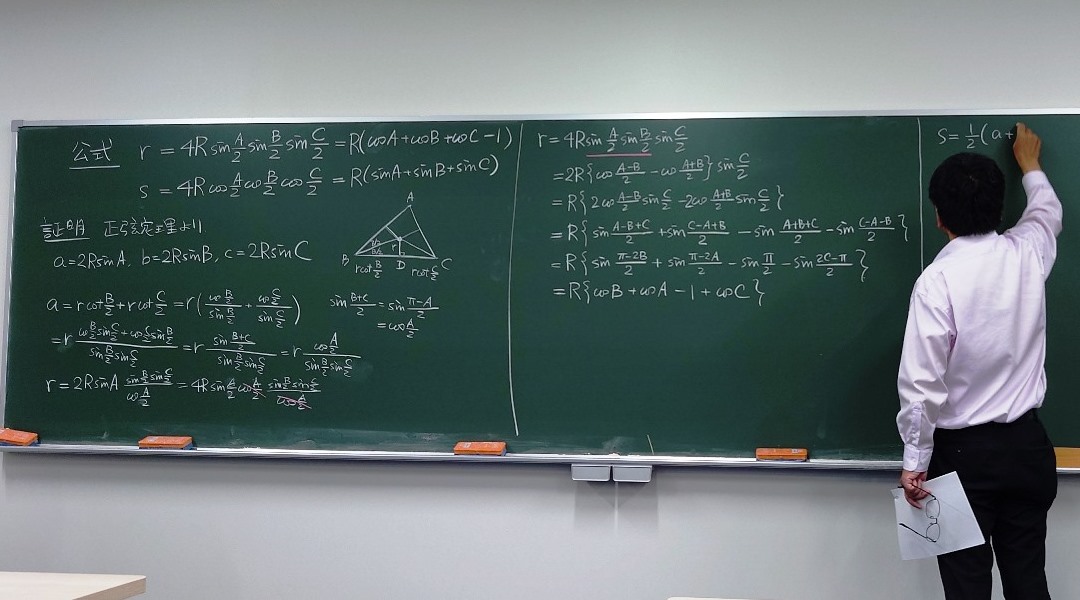 公式 r = 4R sin A/2 sin B/2 sin C/2 = R(cosA+cosB+cosC-1)
s = 4R cos A/2 cos B/2 cos C/2 = R(sinA+sinB+sinC)
証明 正弦定理より
a=2RsinA, b=2RsinB, c=2RsinC
A
B D C
r
r cot B/2 r cot C/2
a = r cot B/2 + r cot C/2 = r( cos B/2 / sin B/2 + cos C/2 / sin C/2 )
= r (cos B/2 sin C/2 + cos C/2 sin B/2) / (sin B/2 sin C/2) = r sin (B+C)/2 / (sin B/2 sin C/2) = r cos A/2 / (sin B/2 sin C/2)
sin (B+C)/2 = sin (π-A)/2
= cos A/2
r = 2RsinA (sin B/2 sin C/2) / cos A/2 = 4R sin A/2 cos A/2 (sin B/2 sin C/2) / cos A/2
r = 4R sin A/2 sin B/2 sin C/2
= 2R{cos (A-B)/2 - cos (A+B)/2} sin C/2
= R{2cos (A-B)/2 sin C/2 - 2cos (A+B)/2 sin C/2}
= R{sin (A-B+C)/2 + sin (C-A+B)/2 - sin (A+B+C)/2 - sin (C-A-B)/2}
= R{sin (π-2B)/2 + sin (π-2A)/2 - sin π/2 - sin (2C-π)/2}
= R{cosB + cosA - 1 + cosC}
S = 1/2 (a+